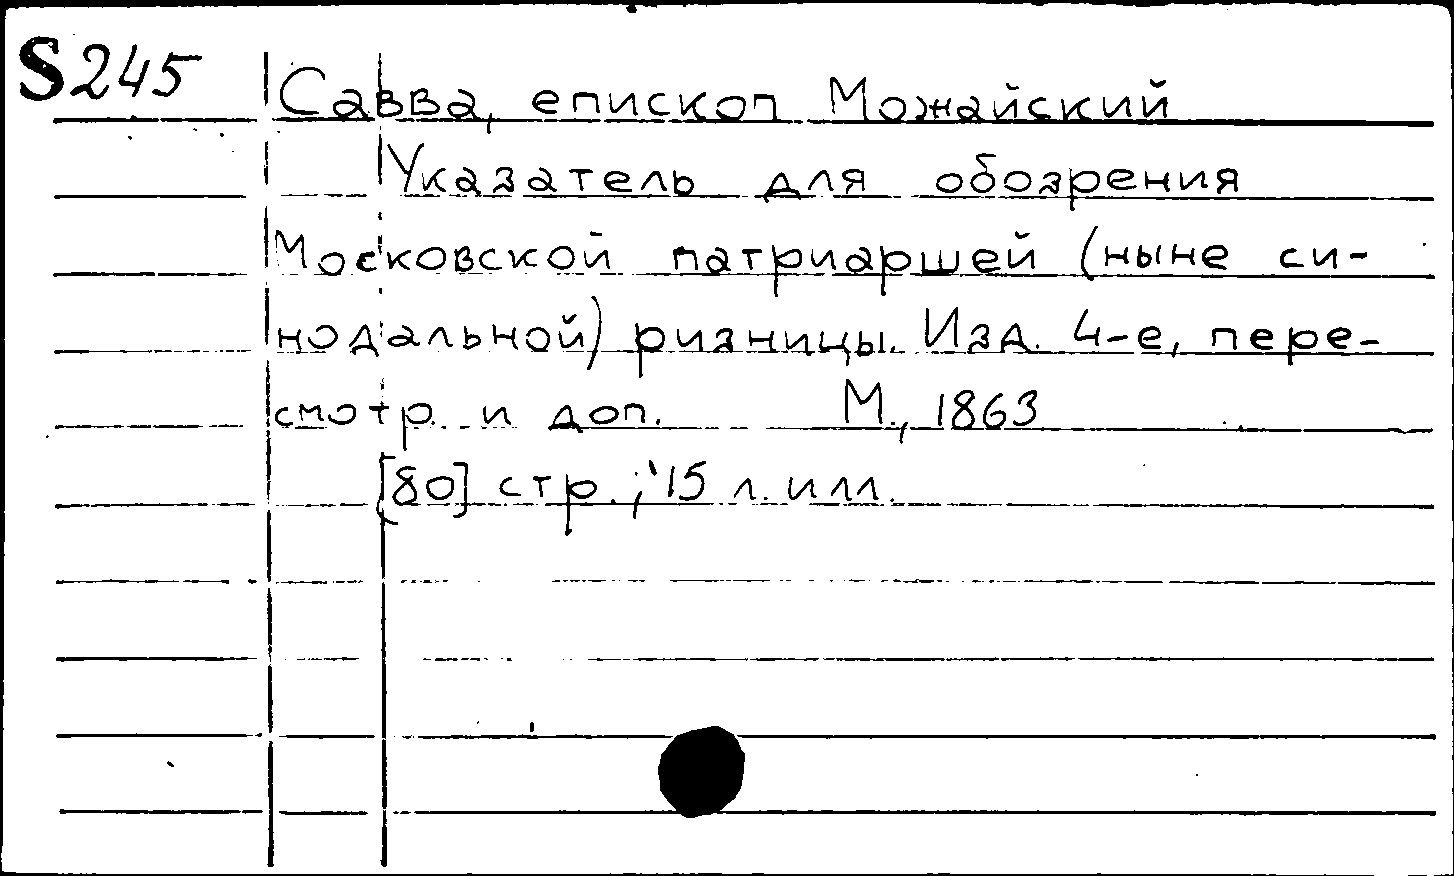 S245
Савва, епископ Можайский
Указатель для обозрения
Московской патриаршей (ныне си-
нодальной) ризницы. Изд. 4-е, пере-
смотр. и доп. М., 1863
[80] стр.; 15 л. илл.